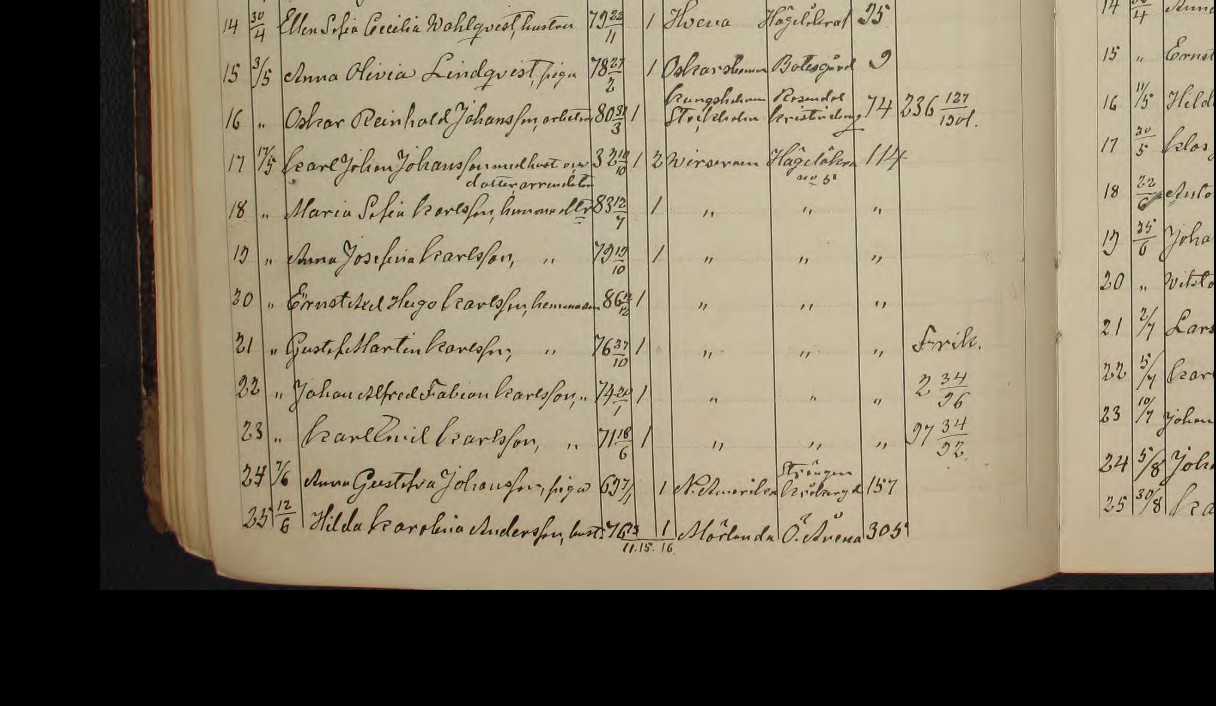 14 30/4 Ellen Sofia Cecilia Wahlqvist, hustru 79 22/11 1 Hvena Hägelåkra 95
15 3/5 Anna Olivia Lindqvist, piga 78 27/2 1 Oskarshamn Botesgård 9
Kungsholm Rosendal
16 " Oskar Reinhold Johansson, arbetare 80 31/3 1 Stockholm Kristineberg 74 236 127/1901.
17 17/5 Karl Johan Johansson med hust och 32 10/10 1 2 Wirserum Hägelåkra 114
dotter, arrendator no 5
18 " Maria Sofia Karlsson, hemmadtr 83 12/7 1 " " "
19 " Anna Josefina Karlsson, " 79 19/10 1 " " "
20 " Ernst Axel Hugo Karlsson, hemmason 86 /12 1 " " "
21 " Gustaf Martin Karlsson, " 76 27/10 1 " " " Frik.
22 " Johan Alfred Fabian Karlsson, " 74 20/1 1 " " " 2 34/96
23 " Karl Emil Karlsson, " 71 18/6 1 " " " 97 34/92.
24 7/6 Anna Gustafva Johansson, piga 69 7/1 1 N. Amerika 157
25 12/6 Hilda Karolina Andersson, hust. 76 1 Mörlunda Ö. Årena 305
11. 15. 16
14 Anna
15 " Ernst
16 11/5 Hild
17 20/5 Klas
18 22/6 Anto
19 25/6 Joha
20 " Vikto
21 2/7 Lars
22 5/7 Kar
23 10/7 Johan
24 5/8 Joh
25 30/8 Ka